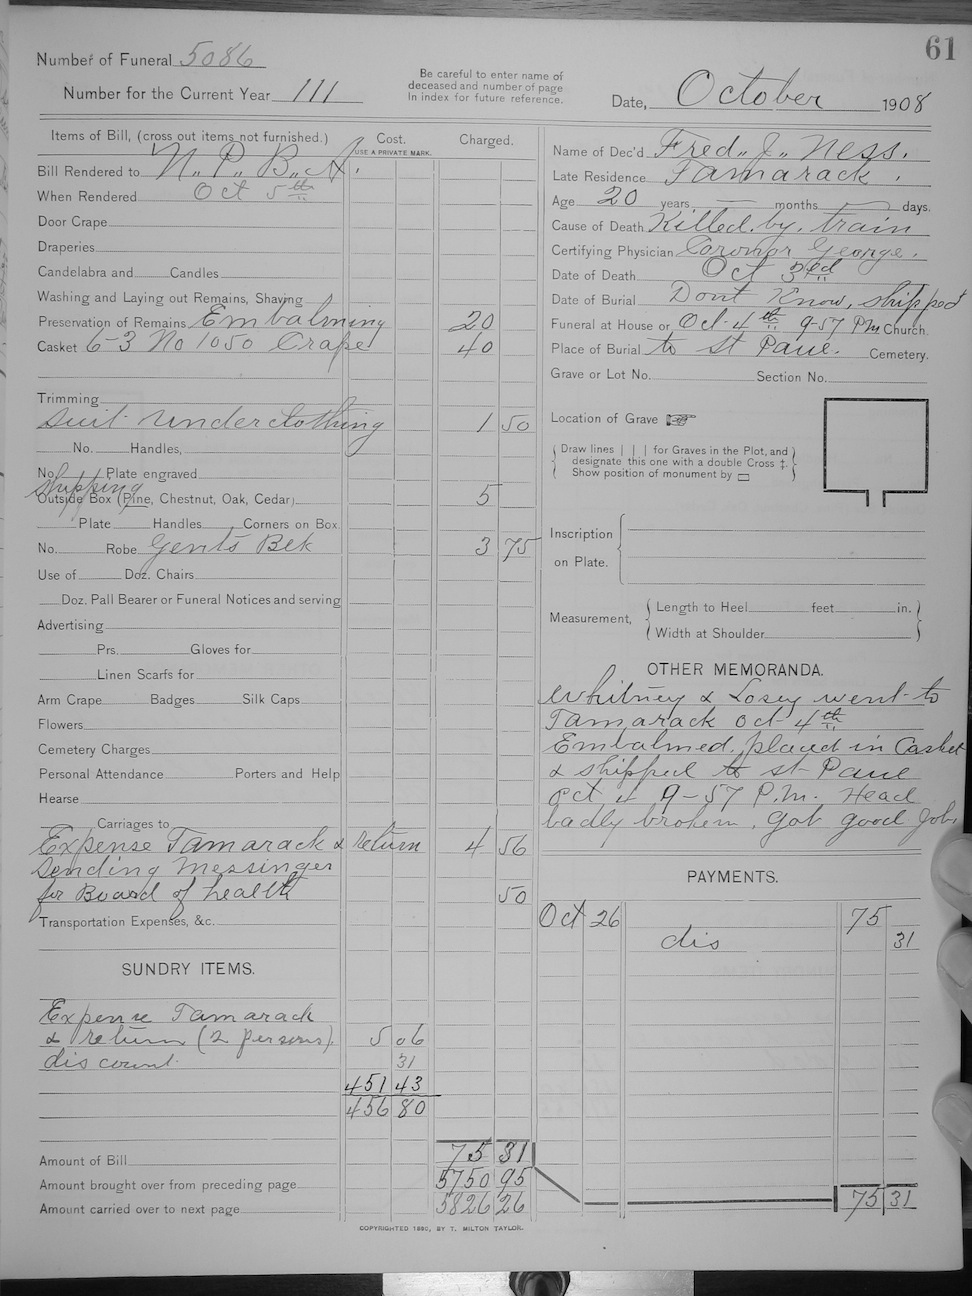 61
Number of Funeral 5086
Number for the Current Year 111
Be careful to enter name of
deceased and number of page
In index for future reference.
Date, October 1908
Items of Bill, (cross out items not furnished.) Cost. Charged.
USE A PRIVATE MARK.
Bill Rendered to N. P. B. A.
When Rendered Oct 5th
Door Crape
Draperies
Candelabra and Candles
Washing and Laying out Remains, Shaving
Preservation of Remains Embalming 20
Casket 6-3 No 1050 Crape 40
Trimming
Suit underclothing 1 50
No. Handles,
No. Plate engraved
shipping
Outside Box (Pine, Chestnut, Oak, Cedar) 5
Plate Handles Corners on Box
No. Robe Gents Blk 3 75
Use of Doz. Chairs
Doz. Pall Bearer or Funeral Notices and serving
Advertising
Prs. Gloves for
Linen Scarfs for
Arm Crape Badges Silk Caps
Flowers
Cemetery Charges
Personal Attendance Porters and Help
Hearse
Carriages to
Expense Tamarack & return 4 56
Sending Messinger
for Board of health 50
Transportation Expenses, &c.
SUNDRY ITEMS.
Expense Tamarack
& return (2 persons) 5 06
discount 31
451 43
456 80
Amount of Bill 75 31
Amount brought over from preceding page 5750 95
Amount carried over to next page 5826 26
Name of Dec'd Fred. J. Ness.
Late Residence Tamarack.
Age 20 years — months — days.
Cause of Death Killed by train
Certifying Physician Coronor George.
Date of Death Oct 3rd
Date of Burial Dont Know, shipped
Funeral at House or Oct. 4th 9-57 P.M. Church.
Place of Burial to St Paul. Cemetery.
Grave or Lot No. Section No.
Location of Grave
Draw lines | | | for Graves in the Plot, and
designate this one with a double Cross ‡.
Show position of monument by ▭
Inscription
on Plate.
Measurement, Length to Heel feet in.
Width at Shoulder
OTHER MEMORANDA.
Whitney & Losey went to
Tamarack Oct 4th
Embalmed, placed in Casket
& shipped to St Paul
Oct 4 9-57 P.M. Head
badly broken. Got good Job.
PAYMENTS.
Oct 26 75
dis 31
75 31
COPYRIGHTED 1890, BY T. MILTON TAYLOR.